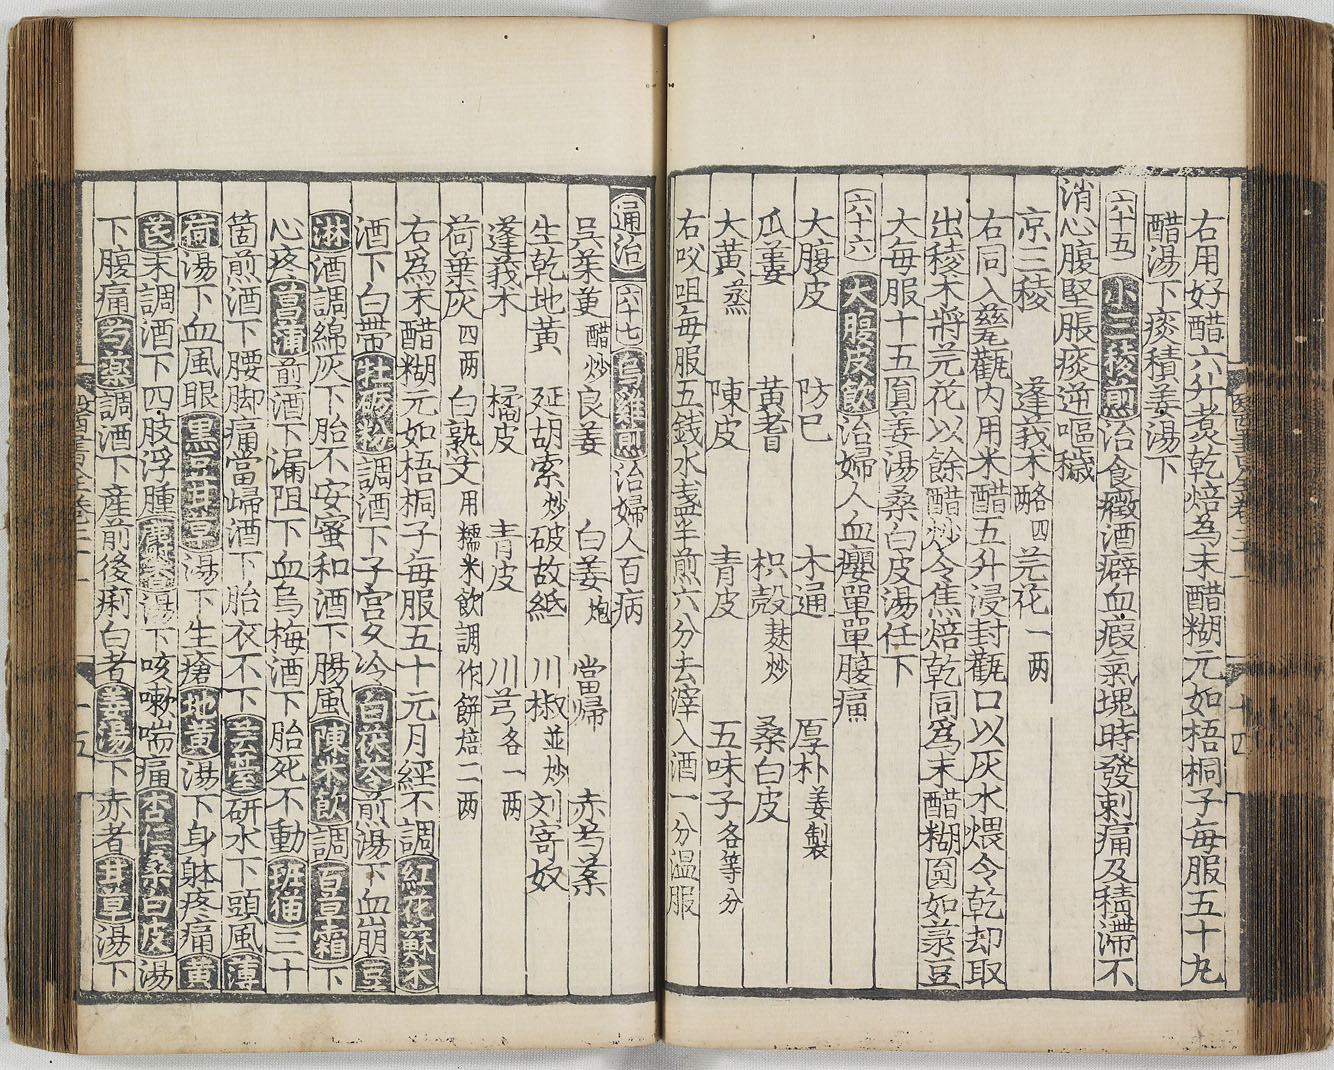 右用好醋六升煮乾焙為末醋糊元如梧桐子每服五十丸
醋湯下痰積姜湯下
六十五 小三稜煎 治食癥酒癖血瘕氣塊時發刺痛及積滯不
消心腹堅脹痰逆嘔穢
京三稜 蓬莪朮 酪四 芫花 一兩
右同入甆觀內用米醋五升浸封觀口以灰水煨令乾却取
出稜朮將芫花以餘醋炒令焦焙乾同為末醋糊圓如菉豆
大每服十五圓姜湯桑白皮湯任下
六十六 大腹皮飲 治婦人血癭單單腹痛
大腹皮 防己 木通 厚朴 姜製
瓜蔞 黃耆 枳殼 麸炒 桑白皮
大黃 蒸 陳皮 青皮 五味子 各等分
右㕮咀每服五錢水盞半煎六分去滓入酒一分溫服
通治 六十七 烏雞煎 治婦人百病
吳茱萸 醋炒 良姜 白姜 炮 當歸 赤芍藥
生乾地黃 延胡索 炒 破故紙 川椒 並炒 刘寄奴
蓬莪朮 橘皮 青皮 川芎 各一兩
荷葉灰 四兩 白熟艾 用糯米飲調作餅焙二兩
右為末醋糊元如梧桐子每服五十元月經不調紅花蘇木
酒下白帶牡蛎粉調酒下子宮久冷白茯苓煎湯下血崩豆
淋酒調綿灰下胎不安蜜和酒下腸風陳米飲調百草霜下
心疼菖蒲煎酒下漏阻下血烏梅酒下胎死不動班猫三十
箇煎酒下腰脚痛當歸酒下胎衣不下芸薹研水下頭風薄
荷湯下血風眼黑豆甘草湯下生瘡地黃湯下身躰疼痛黃
芪末調酒下四肢浮腫湯下咳嗽喘痛杏仁桑白皮湯
下腹痛芍藥調酒下産前後痢白者姜湯下赤者甘草湯下